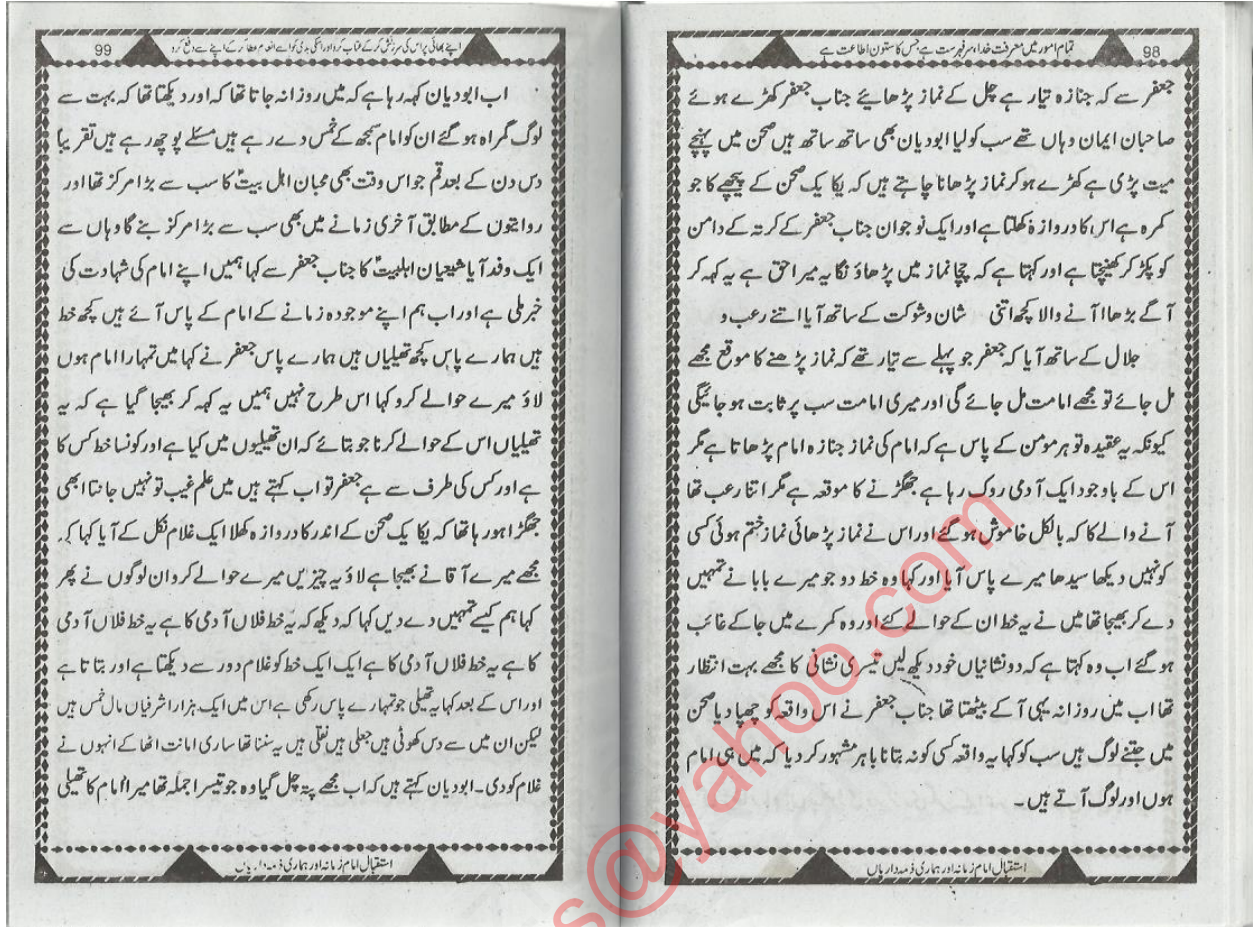 98
تمام امور میں معرفت خدا، سرفہرست ہے، جس کا ستون اطاعت ہے
جعفر سے کہ جنازہ تیار ہے چل کے نماز پڑھایئے جناب جعفر کھڑے ہوئے
صاحبان ایمان وہاں تھے سب کو لیا ابودیان بھی ساتھ ساتھ ہیں صحن میں پہنچے
میت پڑی ہے کھڑے ہو کر نماز پڑھانا چاہتے ہیں کہ یکا یک صحن کے پیچھے کا جو
کمرہ ہے اس کا دروازہ کھلتا ہے اور ایک نوجوان جناب جعفر کے کرتہ کے دامن
کو پکڑ کر کھینچتا ہے اور کہتا ہے کہ چچا نماز میں پڑھاؤنگا یہ میرا حق ہے یہ کہہ کر
آگے بڑھا آنے والا کچھ اتنی شان و شوکت کے ساتھ آیا اتنے رعب و
جلال کے ساتھ آیا کہ جعفر جو پہلے سے تیار تھے کہ نماز پڑھنے کا موقع مجھے
مل جائے تو مجھے امامت مل جائے گی اور میری امامت سب پر ثابت ہو جائیگی
کیونکہ یہ عقیدہ تو ہر مومن کے پاس ہے کہ امام کی نماز جنازہ امام پڑھاتا ہے مگر
اس کے باوجود ایک آدمی روک رہا ہے جھگڑنے کا موقعہ ہے مگر اتنا رعب تھا
آنے والے کا کہ بالکل خاموش ہو گئے اور اس نے نماز پڑھائی نماز ختم ہوئی کسی
کو نہیں دیکھا سیدھا میرے پاس آیا اور کہا وہ خط دو جو میرے بابا نے تمہیں
دے کر بھیجا تھا میں نے یہ خط ان کے حوالے کئے اور وہ کمرے میں جا کے غائب
ہو گئے اب وہ کہتا ہے کہ دو نشانیاں خود دیکھ لیں تیسری نشانی کا مجھے بہت انتظار
تھا اب میں روزانہ یہی آ کے بیٹھتا تھا جناب جعفر نے اس واقعہ کو چھپا دیا صحن
میں جتنے لوگ ہیں سب کو کہا یہ واقعہ کسی کو نہ بتانا باہر مشہور کر دیا کہ میں ہی امام
ہوں اور لوگ آتے ہیں۔
استقبال امام زمانہ اور ہماری ذمہ داریاں
99
اپنے بھائی پر اس کی سرزنش کر کے عتاب کرو اور اسکی بدی کو اسے انعام عطا کر کے اپنے سے دفع کرو
اب ابودیان کہہ رہا ہے کہ میں روزانہ جاتا تھا کہ اور دیکھتا تھا کہ بہت سے
لوگ گمراہ ہو گئے ان کو امام سمجھ کے خمس دے رہے ہیں مسئلے پوچھ رہے ہیں تقریبا
دس دن کے بعد قم جو اس وقت بھی محبان اہل بیتؑ کا سب سے بڑا مرکز تھا اور
روایتوں کے مطابق آخری زمانے میں بھی سب سے بڑا مرکز بنے گا وہاں سے
ایک وفد آیا شیعیان اہلبیتؑ کا جناب جعفر سے کہا ہمیں اپنے امام کی شہادت کی
خبر ملی ہے اور اب ہم اپنے موجودہ زمانے کے امام کے پاس آئے ہیں کچھ خط
ہیں ہمارے پاس کچھ تھیلیاں ہیں ہمارے پاس جعفر نے کہا میں تمہارا امام ہوں
لاؤ میرے حوالے کرو کہا اس طرح نہیں ہمیں یہ کہہ کر بھیجا گیا ہے کہ یہ
تھیلیاں اس کے حوالے کرنا جو بتائے کہ ان تھیلیوں میں کیا ہے اور کونسا خط کس کا
ہے اور کس کی طرف سے ہے جعفر تو اب کہتے ہیں میں علم غیب تو نہیں جانتا ابھی
جھگڑا ہو رہا تھا کہ یکا یک صحن کے اندر کا دروازہ کھلا ایک غلام نکل کے آیا کہا کہ
مجھے میرے آقا نے بھیجا ہے لاؤ یہ چیزیں میرے حوالے کرو ان لوگوں نے پھر
کہا ہم کیسے تمہیں دے دیں کہا کہ دیکھ کہ یہ خط فلاں آدمی کا ہے یہ خط فلاں آدمی
کا ہے یہ خط فلاں آدمی کا ہے ایک ایک خط کو غلام دور سے دیکھتا ہے اور بتاتا ہے
اور اس کے بعد کہا یہ تھیلی جو تمہارے پاس رکھی ہے اس میں ایک ہزار اشرفیاں مال خمس ہیں
لیکن ان میں سے دس کھوٹی ہیں جعلی ہیں نقلی ہیں یہ سننا تھا ساری امانت اٹھا کے انہوں نے
غلام کو دی۔ ابودیان کہتے ہیں کہ اب مجھے پتہ چل گیا وہ جو تیسرا جملہ تھا میرا امام کا تھیلی
استقبال امام زمانہ اور ہماری ذمہ داریاں
s@yahoo.com